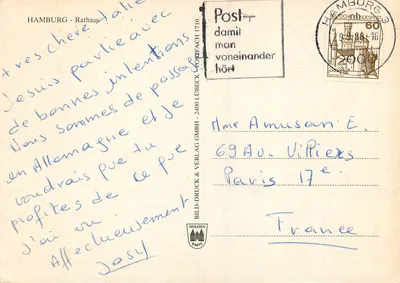 HAMBURG - Rathaus
très chère
Je suis partie avec
de bonnes intentions
Nous sommes de passage
en Allemagne et je
voudrais que tu
profites de ce que
j'ai vu
Affectueusement
Josy
BILD-DRUCK & VERLAG GMBH · 2400 LÜBECK · POSTFACH 1710
Post
damit
man
voneinander
hört
HAMBURG
-16
2000
60
Mme Amusan E.
69 Av. Villiers
Paris 17e
France